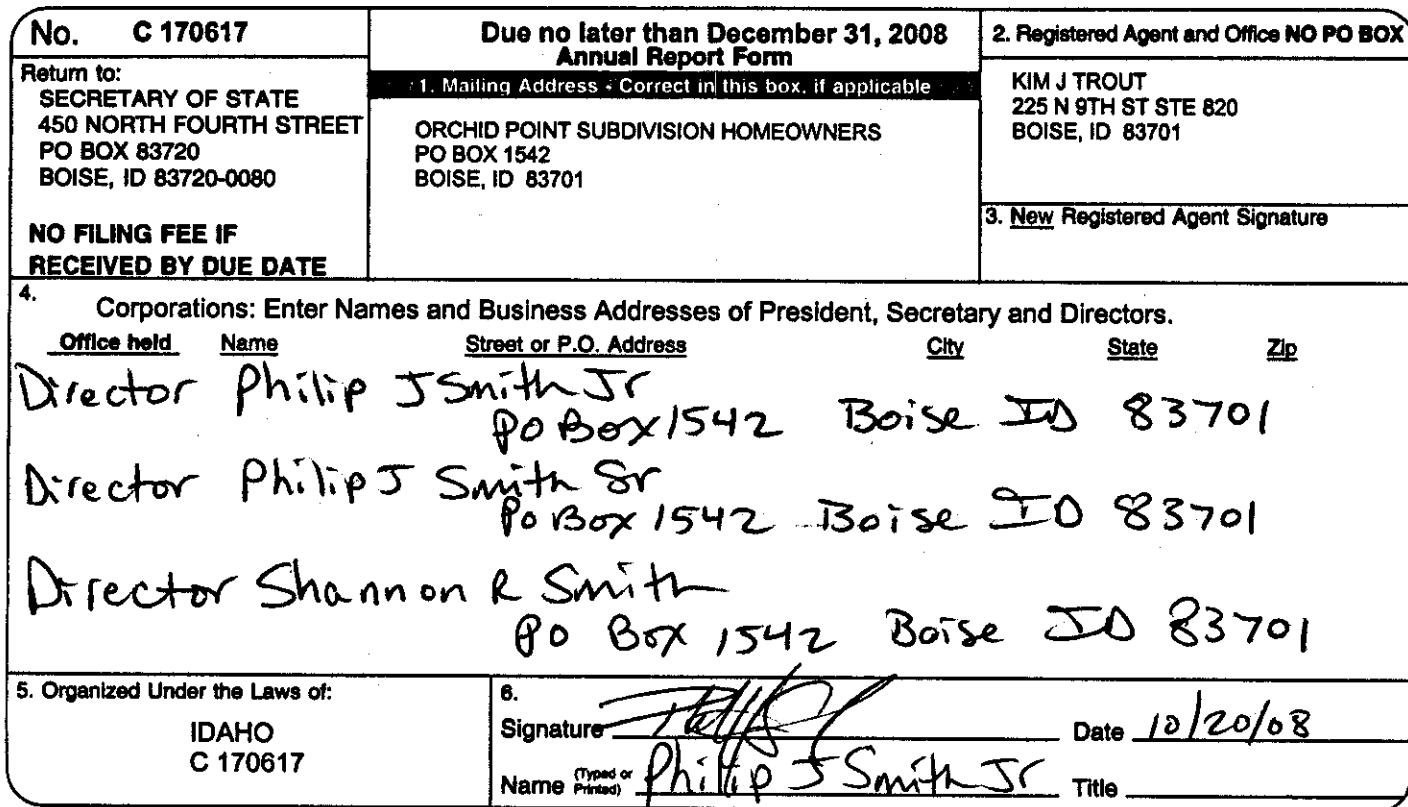 No. C 170617
Return to:
SECRETARY OF STATE
450 NORTH FOURTH STREET
PO BOX 83720
BOISE, ID 83720-0080
NO FILING FEE IF
RECEIVED BY DUE DATE
Due no later than December 31, 2008
Annual Report Form
1. Mailing Address - Correct in this box, if applicable
ORCHID POINT SUBDIVISION HOMEOWNERS
PO BOX 1542
BOISE, ID 83701
2. Registered Agent and Office NO PO BOX
KIM J TROUT
225 N 9TH ST STE 820
BOISE, ID 83701
3. New Registered Agent Signature
4. Corporations: Enter Names and Business Addresses of President, Secretary and Directors.
Office held Name Street or P.O. Address City State Zip
Director Philip J Smith Jr
PO Box 1542 Boise ID 83701
Director Philip J Smith Sr
Po Box 1542 Boise ID 83701
Director Shannon R Smith
PO Box 1542 Boise ID 83701
5. Organized Under the Laws of:
IDAHO
C 170617
6.
Signature Date 10/20/08
Name (Typed or Printed) Philip J Smith Jr Title